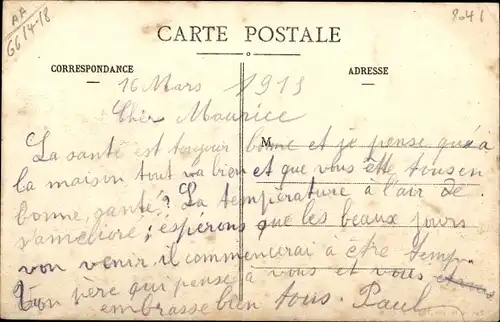 AA
GG 14-18
2041
CARTE POSTALE
CORRESPONDANCE
ADRESSE
16 Mars 1915
Cher Maurice
M
La santé est toujour bonne et je pense qu'à
la maison tout va bien et que vous ête tous en
bonne santé? La température à l'air de
s'améliore; espérons que les beaux jours
von venir il commencerai à être temp.
Ton père qui pense à vous et vous
embrasse bien tous. Paul